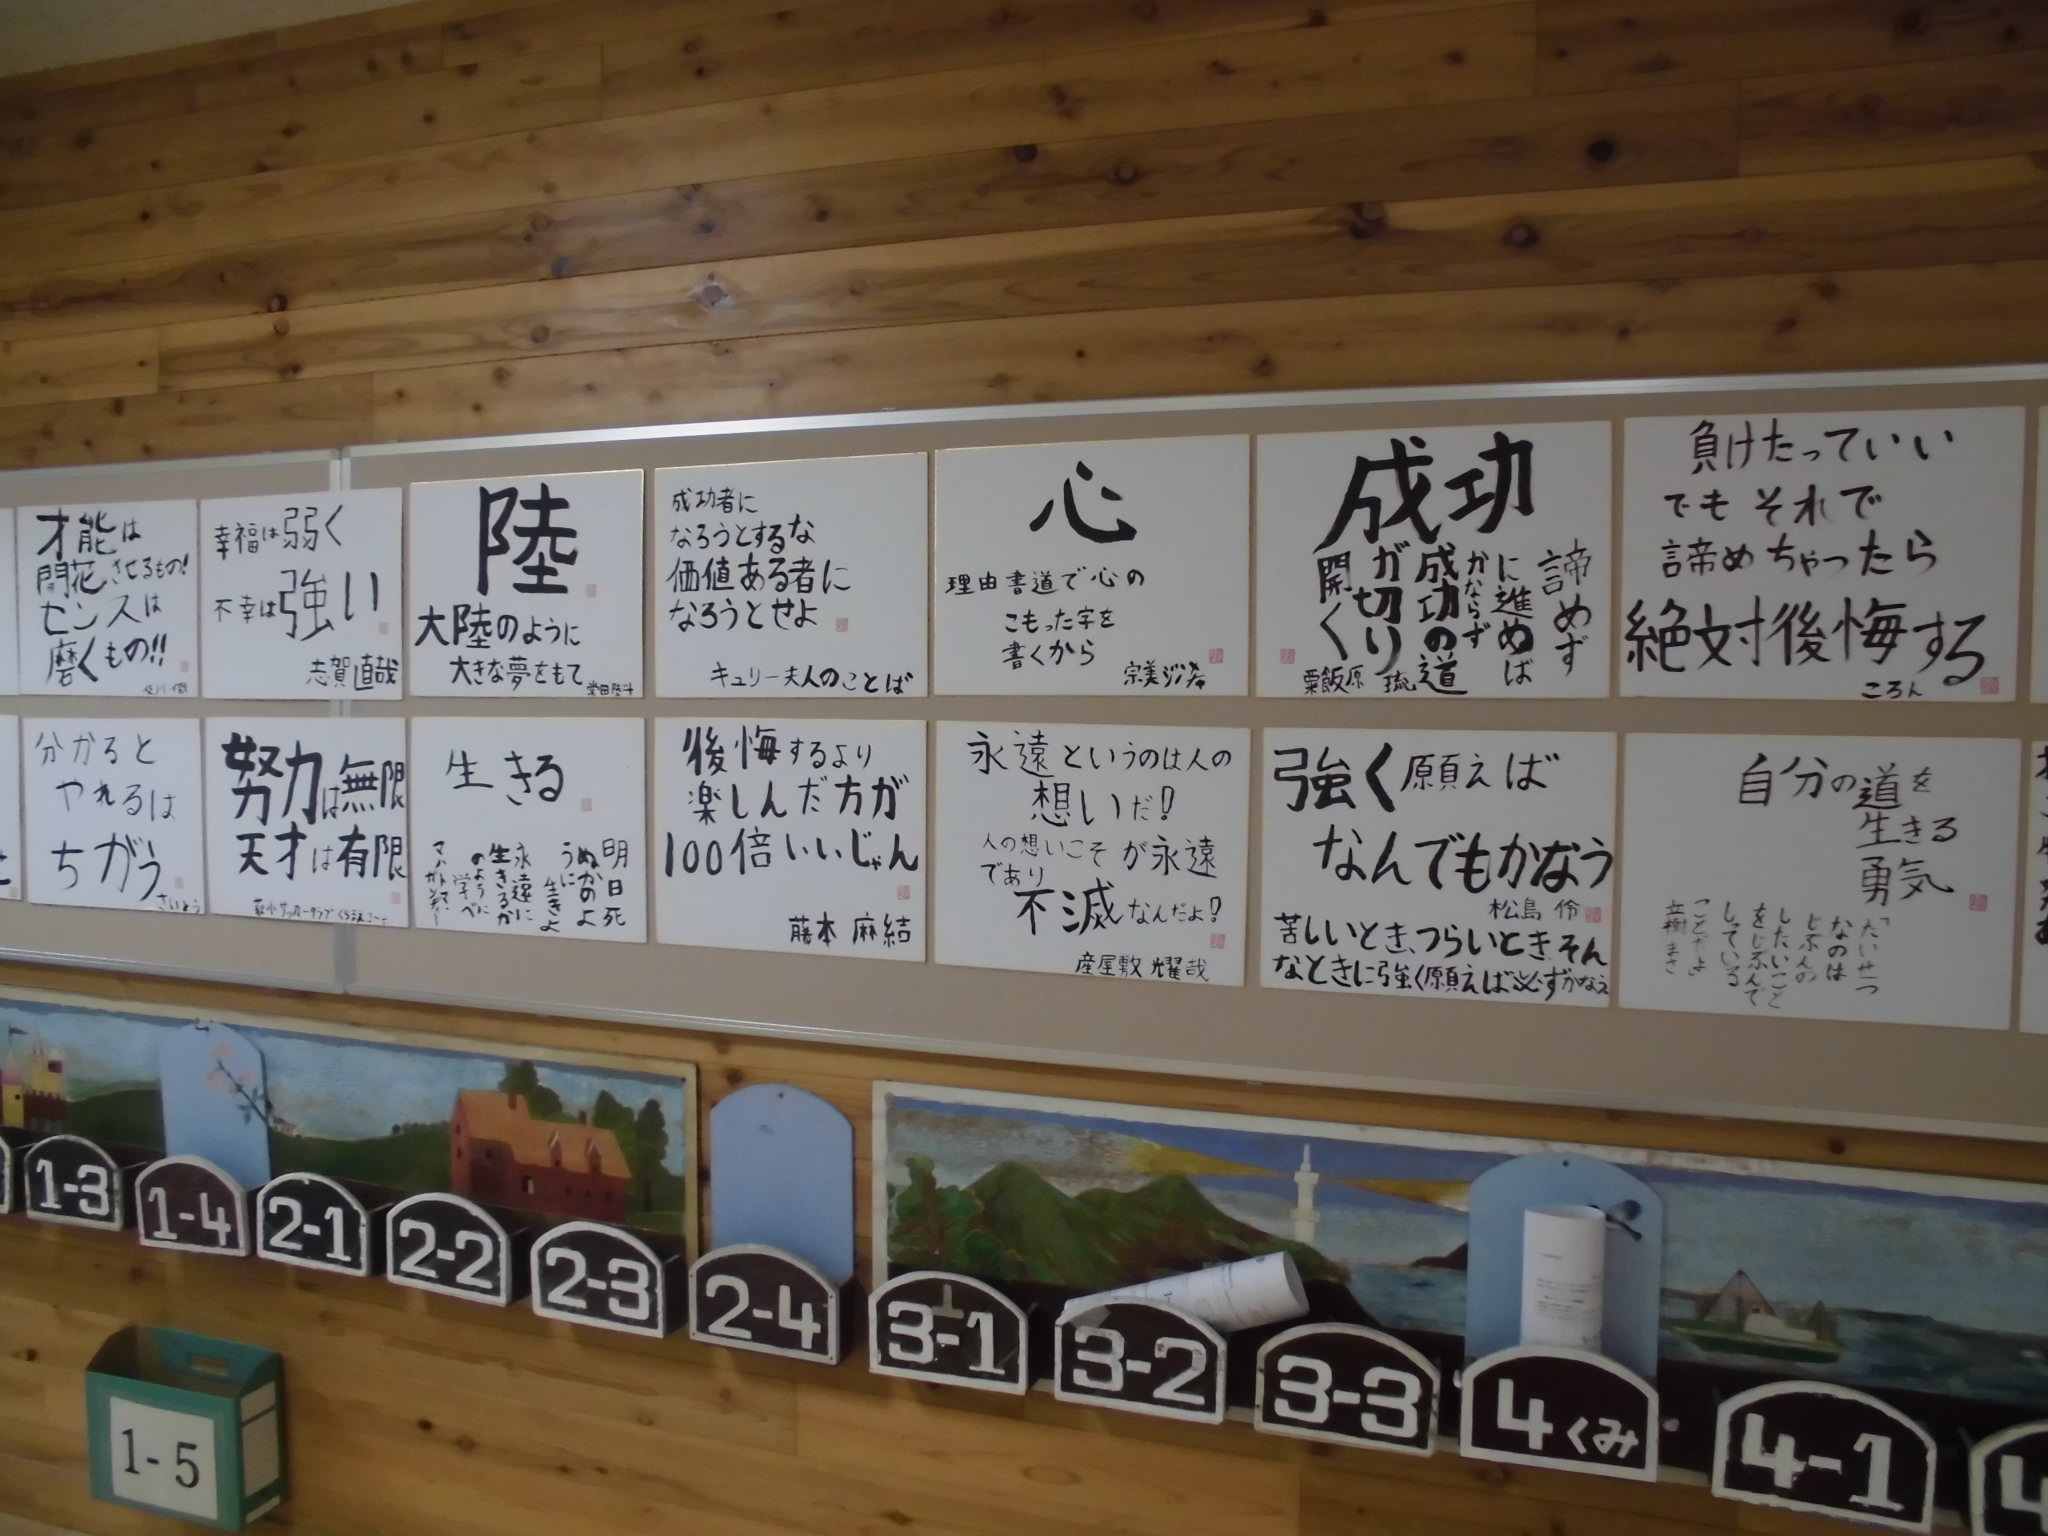 才能は
開花させるもの!
センスは
磨くもの!!
及川 徹
幸福は弱く
不幸は強い
志賀直哉
陸
大陸のように
大きな夢をもて
成功者に
なろうとするな
価値ある者に
なろうとせよ
キュリー夫人のことば
心
理由書道で心の
こもった字を
書くから
成功
諦めず
に進めば
かならず
成功の道
が切り
開く
粟飯原 琉
負けたっていい
でもそれで
諦めちゃったら
絶対後悔する
ころん
分かると
やれるは
ちがう
さいとう
努力は無限
天才は有限
生きる
明日死
ぬかのよ
うに
生きよ
永遠に
生きるか
のように
学べ
マハトマ・
ガンジー
後悔するより
楽しんだ方が
100倍いいじゃん
藤本 麻結
永遠というのは人の
想いだ!
人の想いこそが永遠
であり
不滅なんだよ!
産屋敷 耀哉
強く願えば
なんでもかなう
松島 伶
苦しいとき、つらいとき、そん
なときに強く願えば必ずかなえ
自分の道を
生きる
勇気
「たいせつ
なのは
じぶんの
したいこと
をじぶんで
しっている
ことだよ」
立樹 まさ
1-3
1-4
2-1
2-2
2-3
2-4
3-1
3-2
3-3
4くみ
4-1
1-5